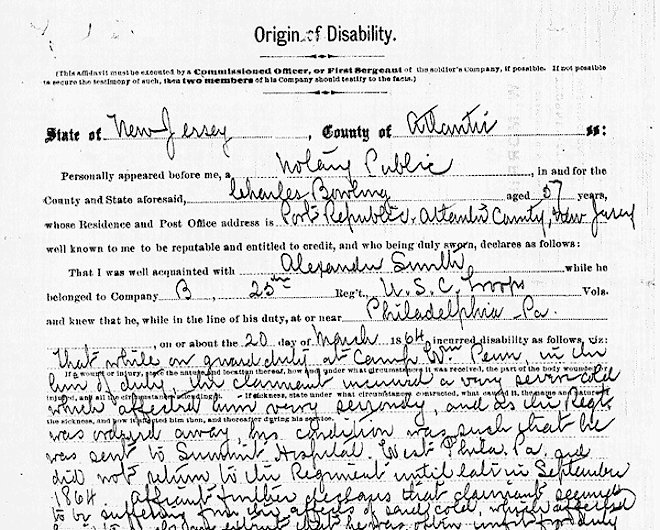 Origin of Disability.
(This affidavit must be executed by a Commissioned Officer, or First Sergeant of the soldier's Company, if possible. If not possible
to secure the testimony of such, then two members of his Company should testify to the facts.)
State of New Jersey, County of Atlantic ss:
Personally appeared before me, a Notary Public, in and for the
County and State aforesaid, Charles Bowling aged 57 years,
whose Residence and Post Office address is Port Republic. Atlantic County, New Jersey
well known to me to be reputable and entitled to credit, and who being duly sworn, declares as follows:
That I was well acquainted with Alexander Smith while he
belonged to Company B, 25th Reg't, U.S.C. Troops Vols.
and knew that he, while in the line of his duty, at or near Philadelphia Pa.
, on or about the 20 day of March 1864 incurred disability as follows, viz:
That while on guard duty at Camp Wm Penn, in the
If a wound or injury, state the nature and location thereof, how and under what circumstances it was received, the part of the body wounded
line of duty, the claimant incurred a very severe cold
injured, and all the circumstances attending it. If sickness, state under what circumstances contracted, what caused it, the name and nature of
which affected him very seriously, and as the Regt.
the sickness, and how it affected him then, and thereafter during his service.
was ordered away, his condition was such that he
was sent to Summit Hospital. West Phila, Pa. and
did not return to the Regiment until late in September
1864. Affiant further declares that claimant seemed
to be suffering from the affects of said cold, which affected